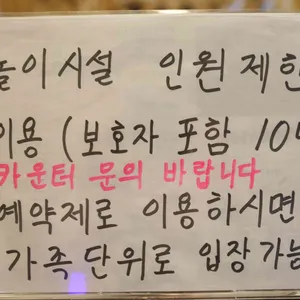 놀이시설 인원제한
이용 (보호자 포함 10
카운터 문의 바랍니다
예약제로 이용하시면
가족단위로 입장가능